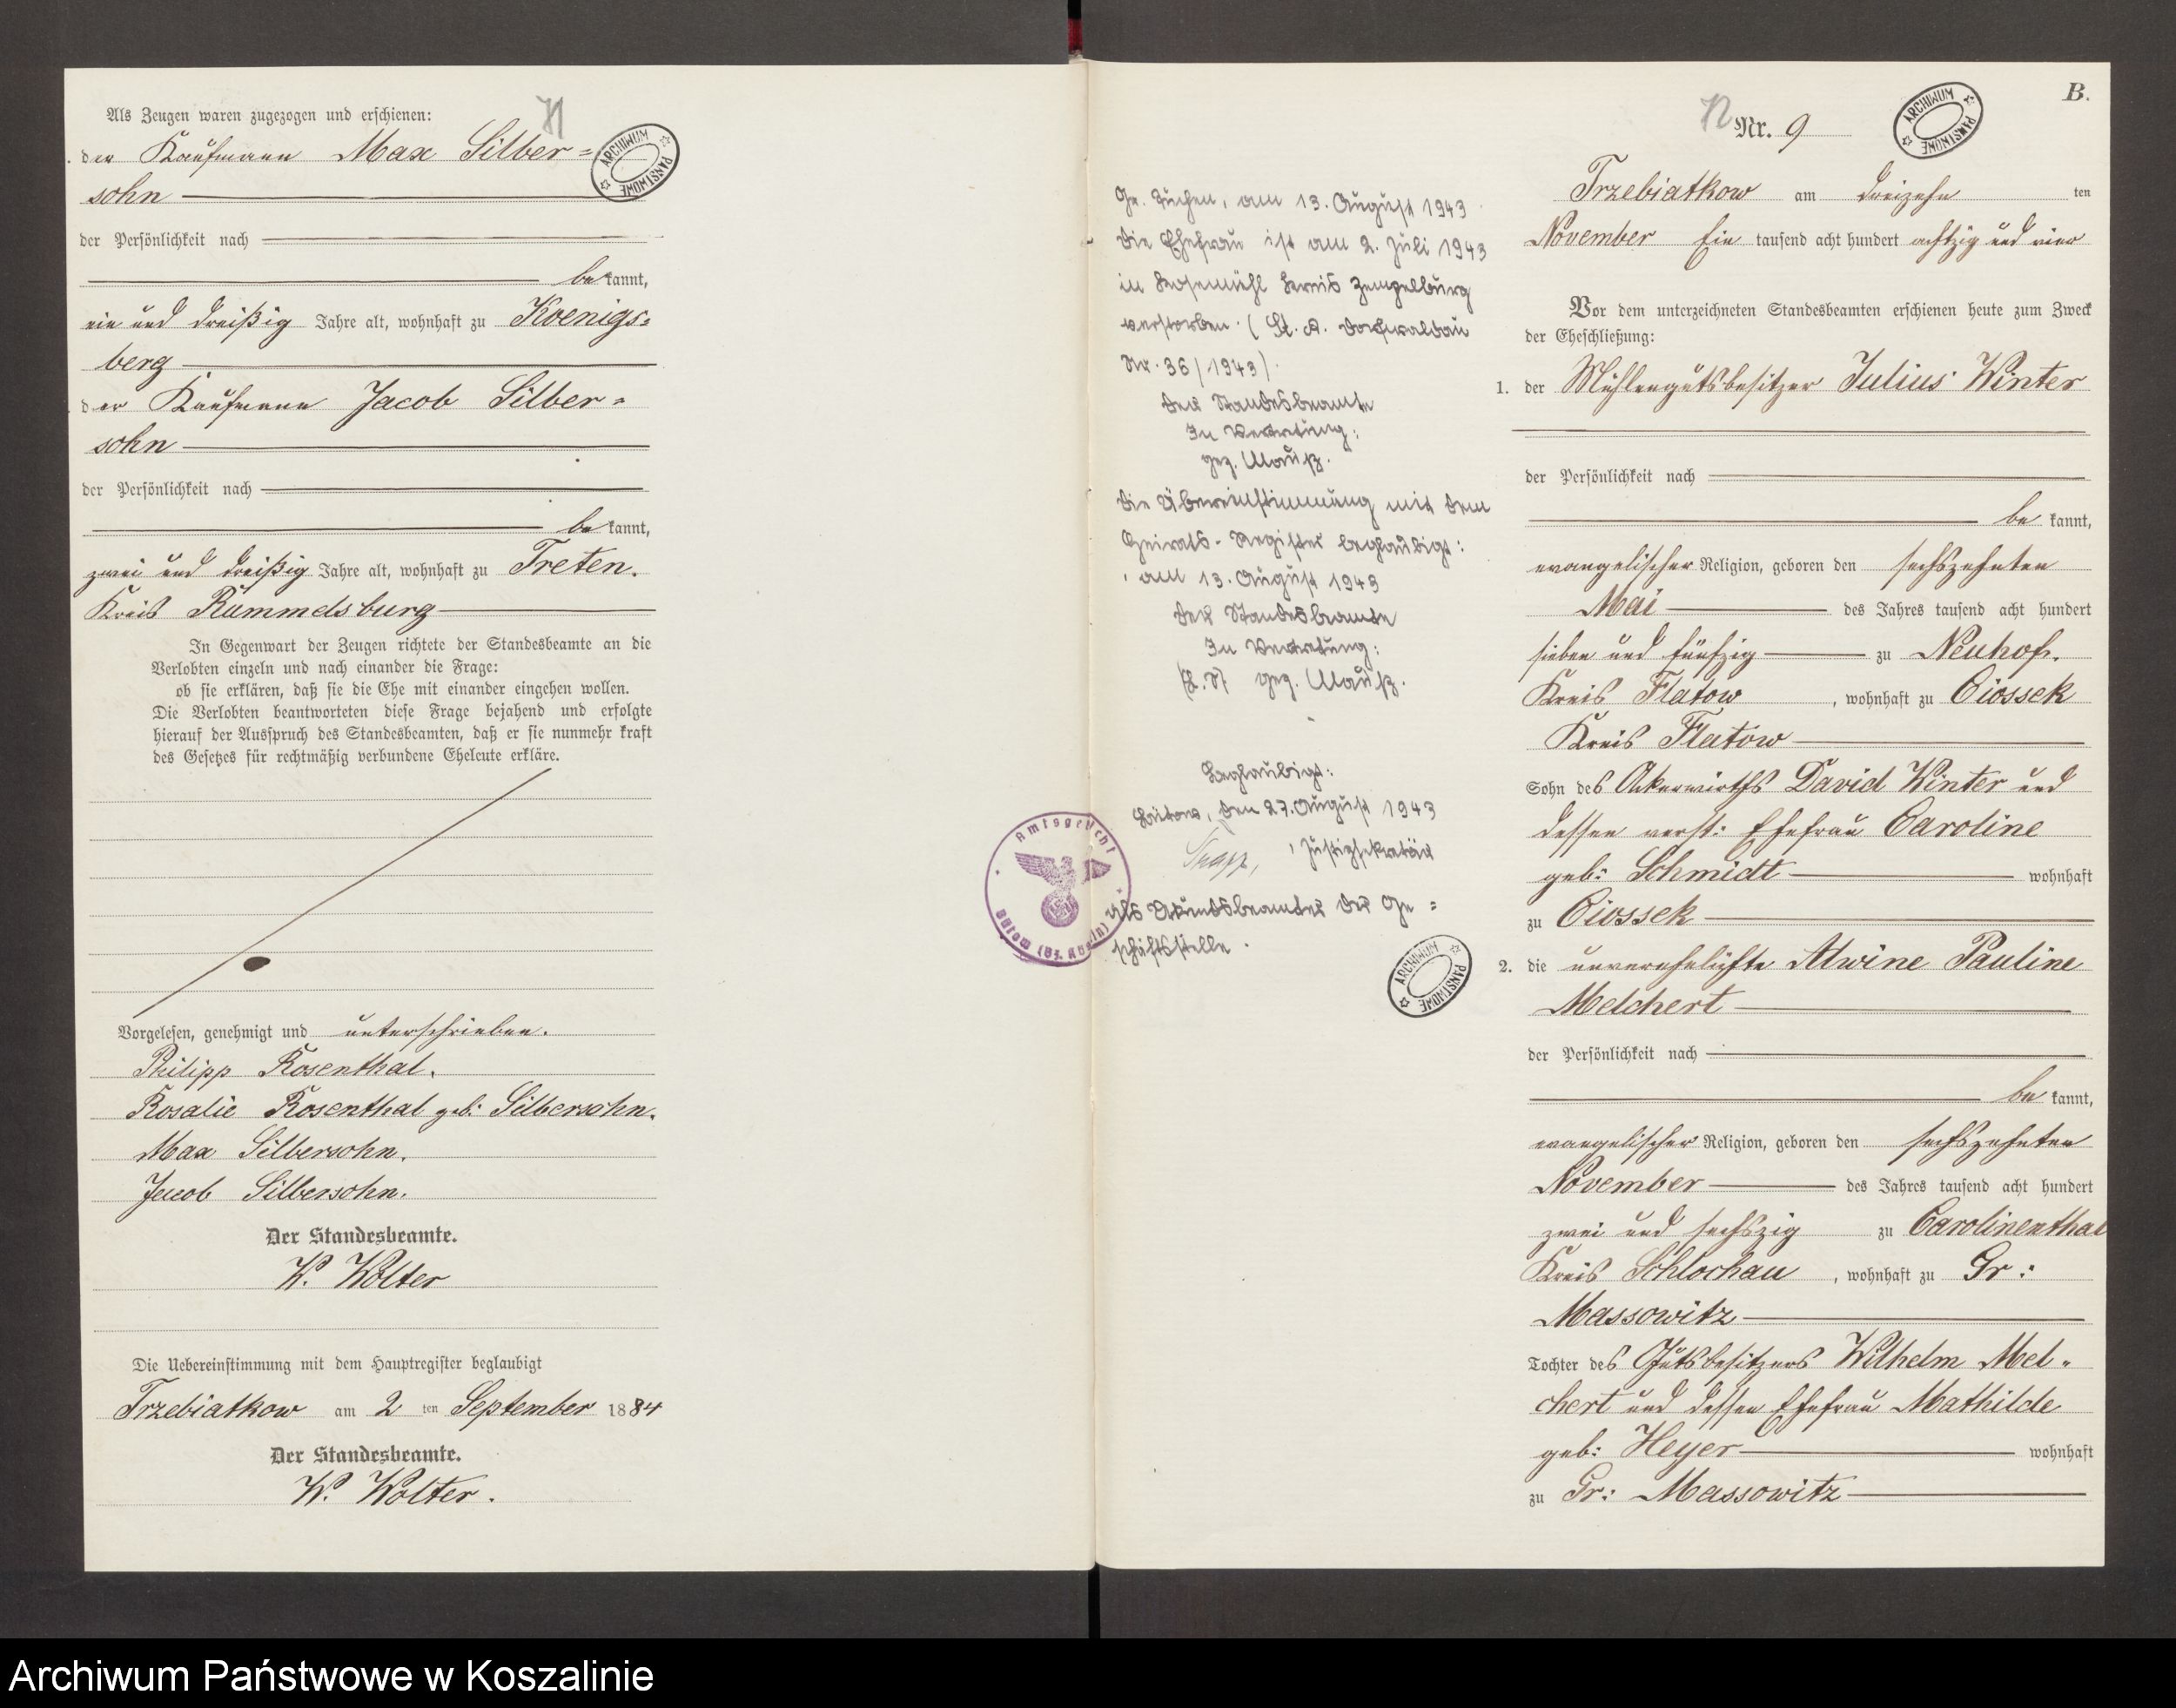 Als Zeugen waren zugezogen und erschienen:
71
der Kaufmann Max Silber=
sohn
der Persönlichkeit nach
be kannt,
ein und dreißig Jahre alt, wohnhaft zu Koenigs=
berg
der Kaufmann Jacob Silber=
sohn
der Persönlichkeit nach
be kannt,
zwei und dreißig Jahre alt, wohnhaft zu Treten.
Kreis Rummelsburg
In Gegenwart der Zeugen richtete der Standesbeamte an die
Verlobten einzeln und nach einander die Frage:
ob sie erklären, daß sie die Ehe mit einander eingehen wollen.
Die Verlobten beantworteten diese Frage bejahend und erfolgte
hierauf der Ausspruch des Standesbeamten, daß er sie nunmehr kraft
des Gesetzes für rechtmäßig verbundene Eheleute erkläre.
Vorgelesen, genehmigt und unterschrieben.
Philipp Rosenthal.
Rosalie Rosenthal geb: Silbersohn.
Max Silbersohn.
Jacob Silbersohn.
Der Standesbeamte.
W. Wolter
Die Uebereinstimmung mit dem Hauptregister beglaubigt
Trzebiatkow am 2 ten September 1884
Der Standesbeamte.
W. Wolter.
ARCHIWUM PAŃSTWOWE
Gr. Tuchen, am 13. August 1943
Die Ehefrau ist am 2. Juli 1943
in Kreis Zempelburg
verstorben. (St. A.
Nr. 36/1943).
Der Standesbeamte
In Vertretung:
gez.
Die Übereinstimmung mit dem
Heirats-Register beglaubigt:
am 13. August 1943
Der Standesbeamte
In Vertretung:
(L.S) gez.
Beglaubigt:
Bütow, den 27. August 1943
, Justizsekretär
als Urkundsbeamter der Ge=
schäftsstelle.
Amtsgericht
Bütow (Bz. Köslin)
ARCHIWUM PAŃSTWOWE
B.
72 Nr. 9
ARCHIWUM PAŃSTWOWE
Trzebiatkow am dreizehn ten
November Ein tausend acht hundert achtzig und vier
Vor dem unterzeichneten Standesbeamten erschienen heute zum Zweck
der Eheschließung:
1. der Mühlengutsbesitzer Julius Winter
der Persönlichkeit nach
be kannt,
evangelischer Religion, geboren den sechszehnten
Mai des Jahres tausend acht hundert
sieben und fünfzig zu Neuhof.
Kreis Flatow , wohnhaft zu Ciossek
Kreis Flatow
Sohn des Ackerwirths David Winter und
dessen verst: Ehefrau Caroline
geb: Schmidt wohnhaft
zu Ciossek
2. die unverehelichte Alwine Pauline
Melchert
der Persönlichkeit nach
be kannt,
evangelischer Religion, geboren den sechszehnten
November des Jahres tausend acht hundert
zwei und sechszig zu Carolinenthal
Kreis Schlochau , wohnhaft zu Gr:
Massowitz
Tochter des Gutsbesitzers Wilhelm Mel=
chert und dessen Ehefrau Mathilde
geb: Heyer wohnhaft
zu Gr: Massowitz
Archiwum Państwowe w Koszalinie